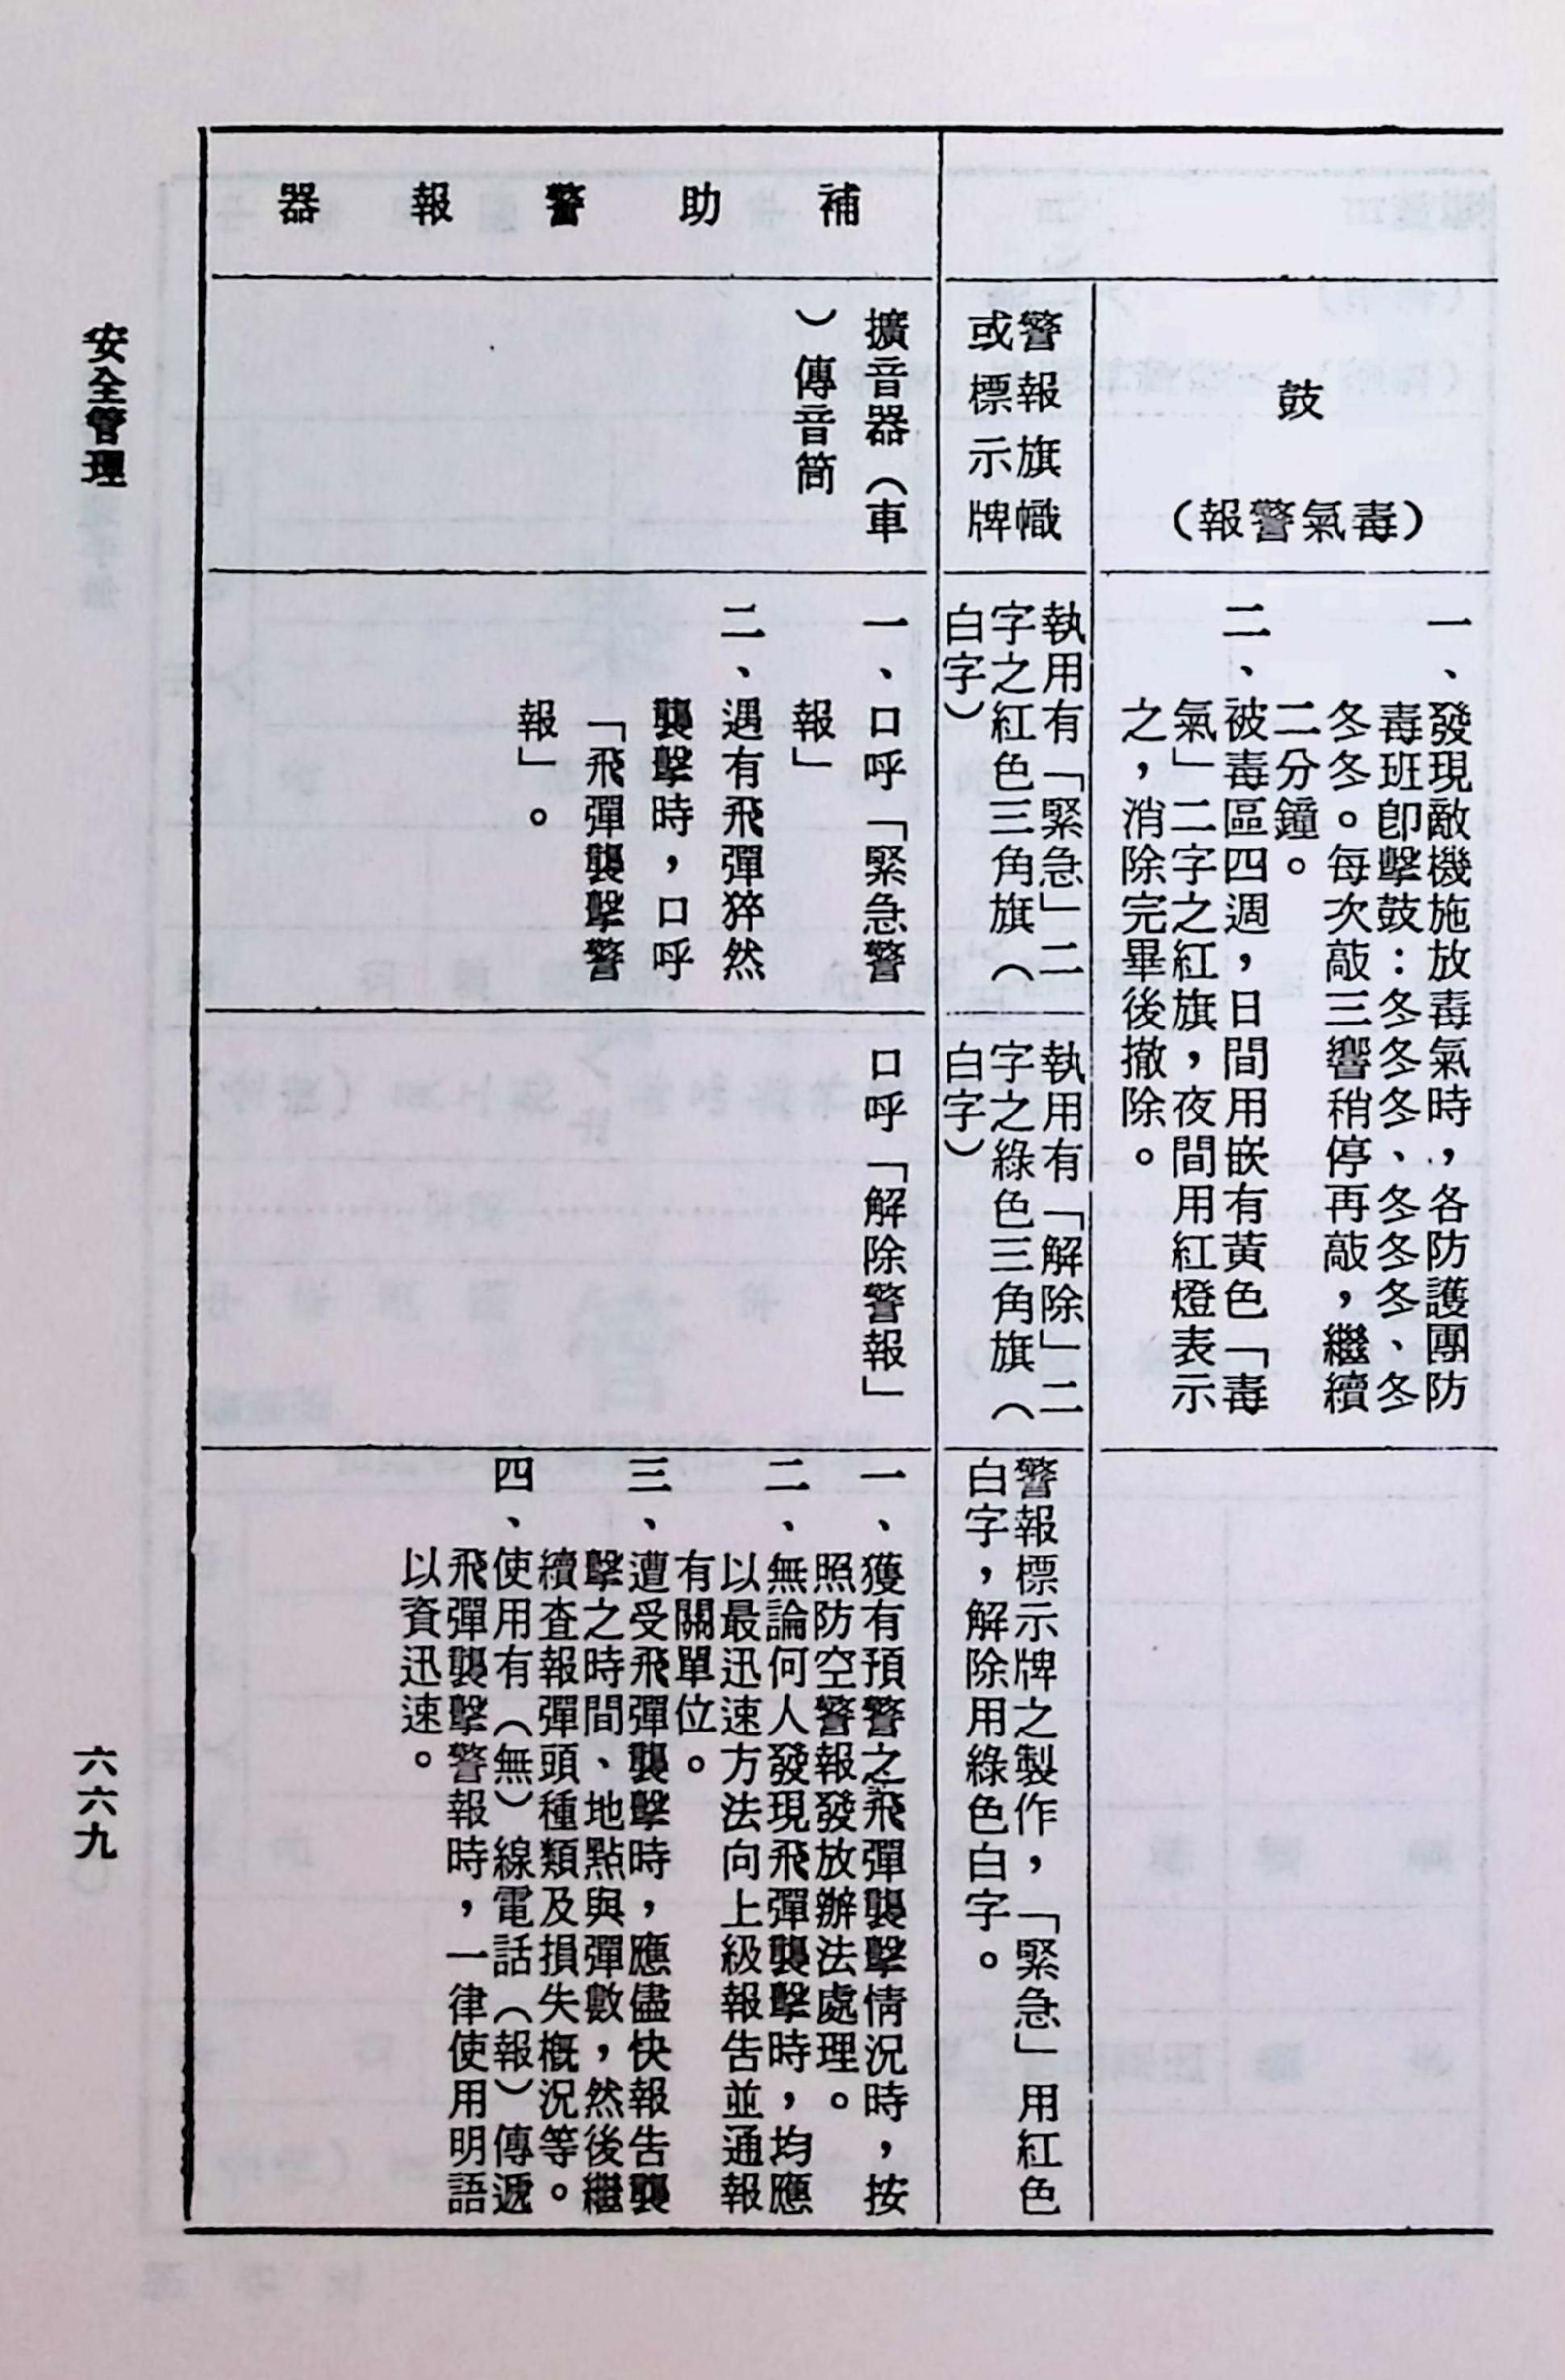 鼓
（毒氣警報）
一、發現敵機施放毒氣時，各防護團防
毒班卽擊鼓：冬冬冬、冬冬冬、冬
冬冬。每次敲三響稍停再敲，繼續
二分鐘。
二、被毒區四週，日間用嵌有黃色「毒
氣」二字之紅旗，夜間用紅燈表示
之，消除完畢後撤除。
警報旗幟
或標示牌
執用有「緊急」二
字之紅色三角旗（
白字）
執用有「解除」二
字之綠色三角旗（
白字）
警報標示牌之製作，「緊急」用紅色
白字，解除用綠色白字。
補助警報器
擴音器（車
）傳音筒
一、口呼「緊急警
報」
二、遇有飛彈猝然
襲擊時，口呼
「飛彈襲擊警
報」。
口呼「解除警報」
一、獲有預警之飛彈襲擊情況時，按
照防空警報發放辦法處理。
二、無論何人發現飛彈襲擊時，均應
以最迅速方法向上級報告並通報
有關單位。
三、遭受飛彈襲擊時，應儘快報告襲
擊之時間、地點與彈數，然後繼
續査報彈頭種類及損失概況等。
四、使用有（無）線電話（報）傳遞
飛彈襲擊警報時，一律使用明語
以資迅速。
安全管理
六六九